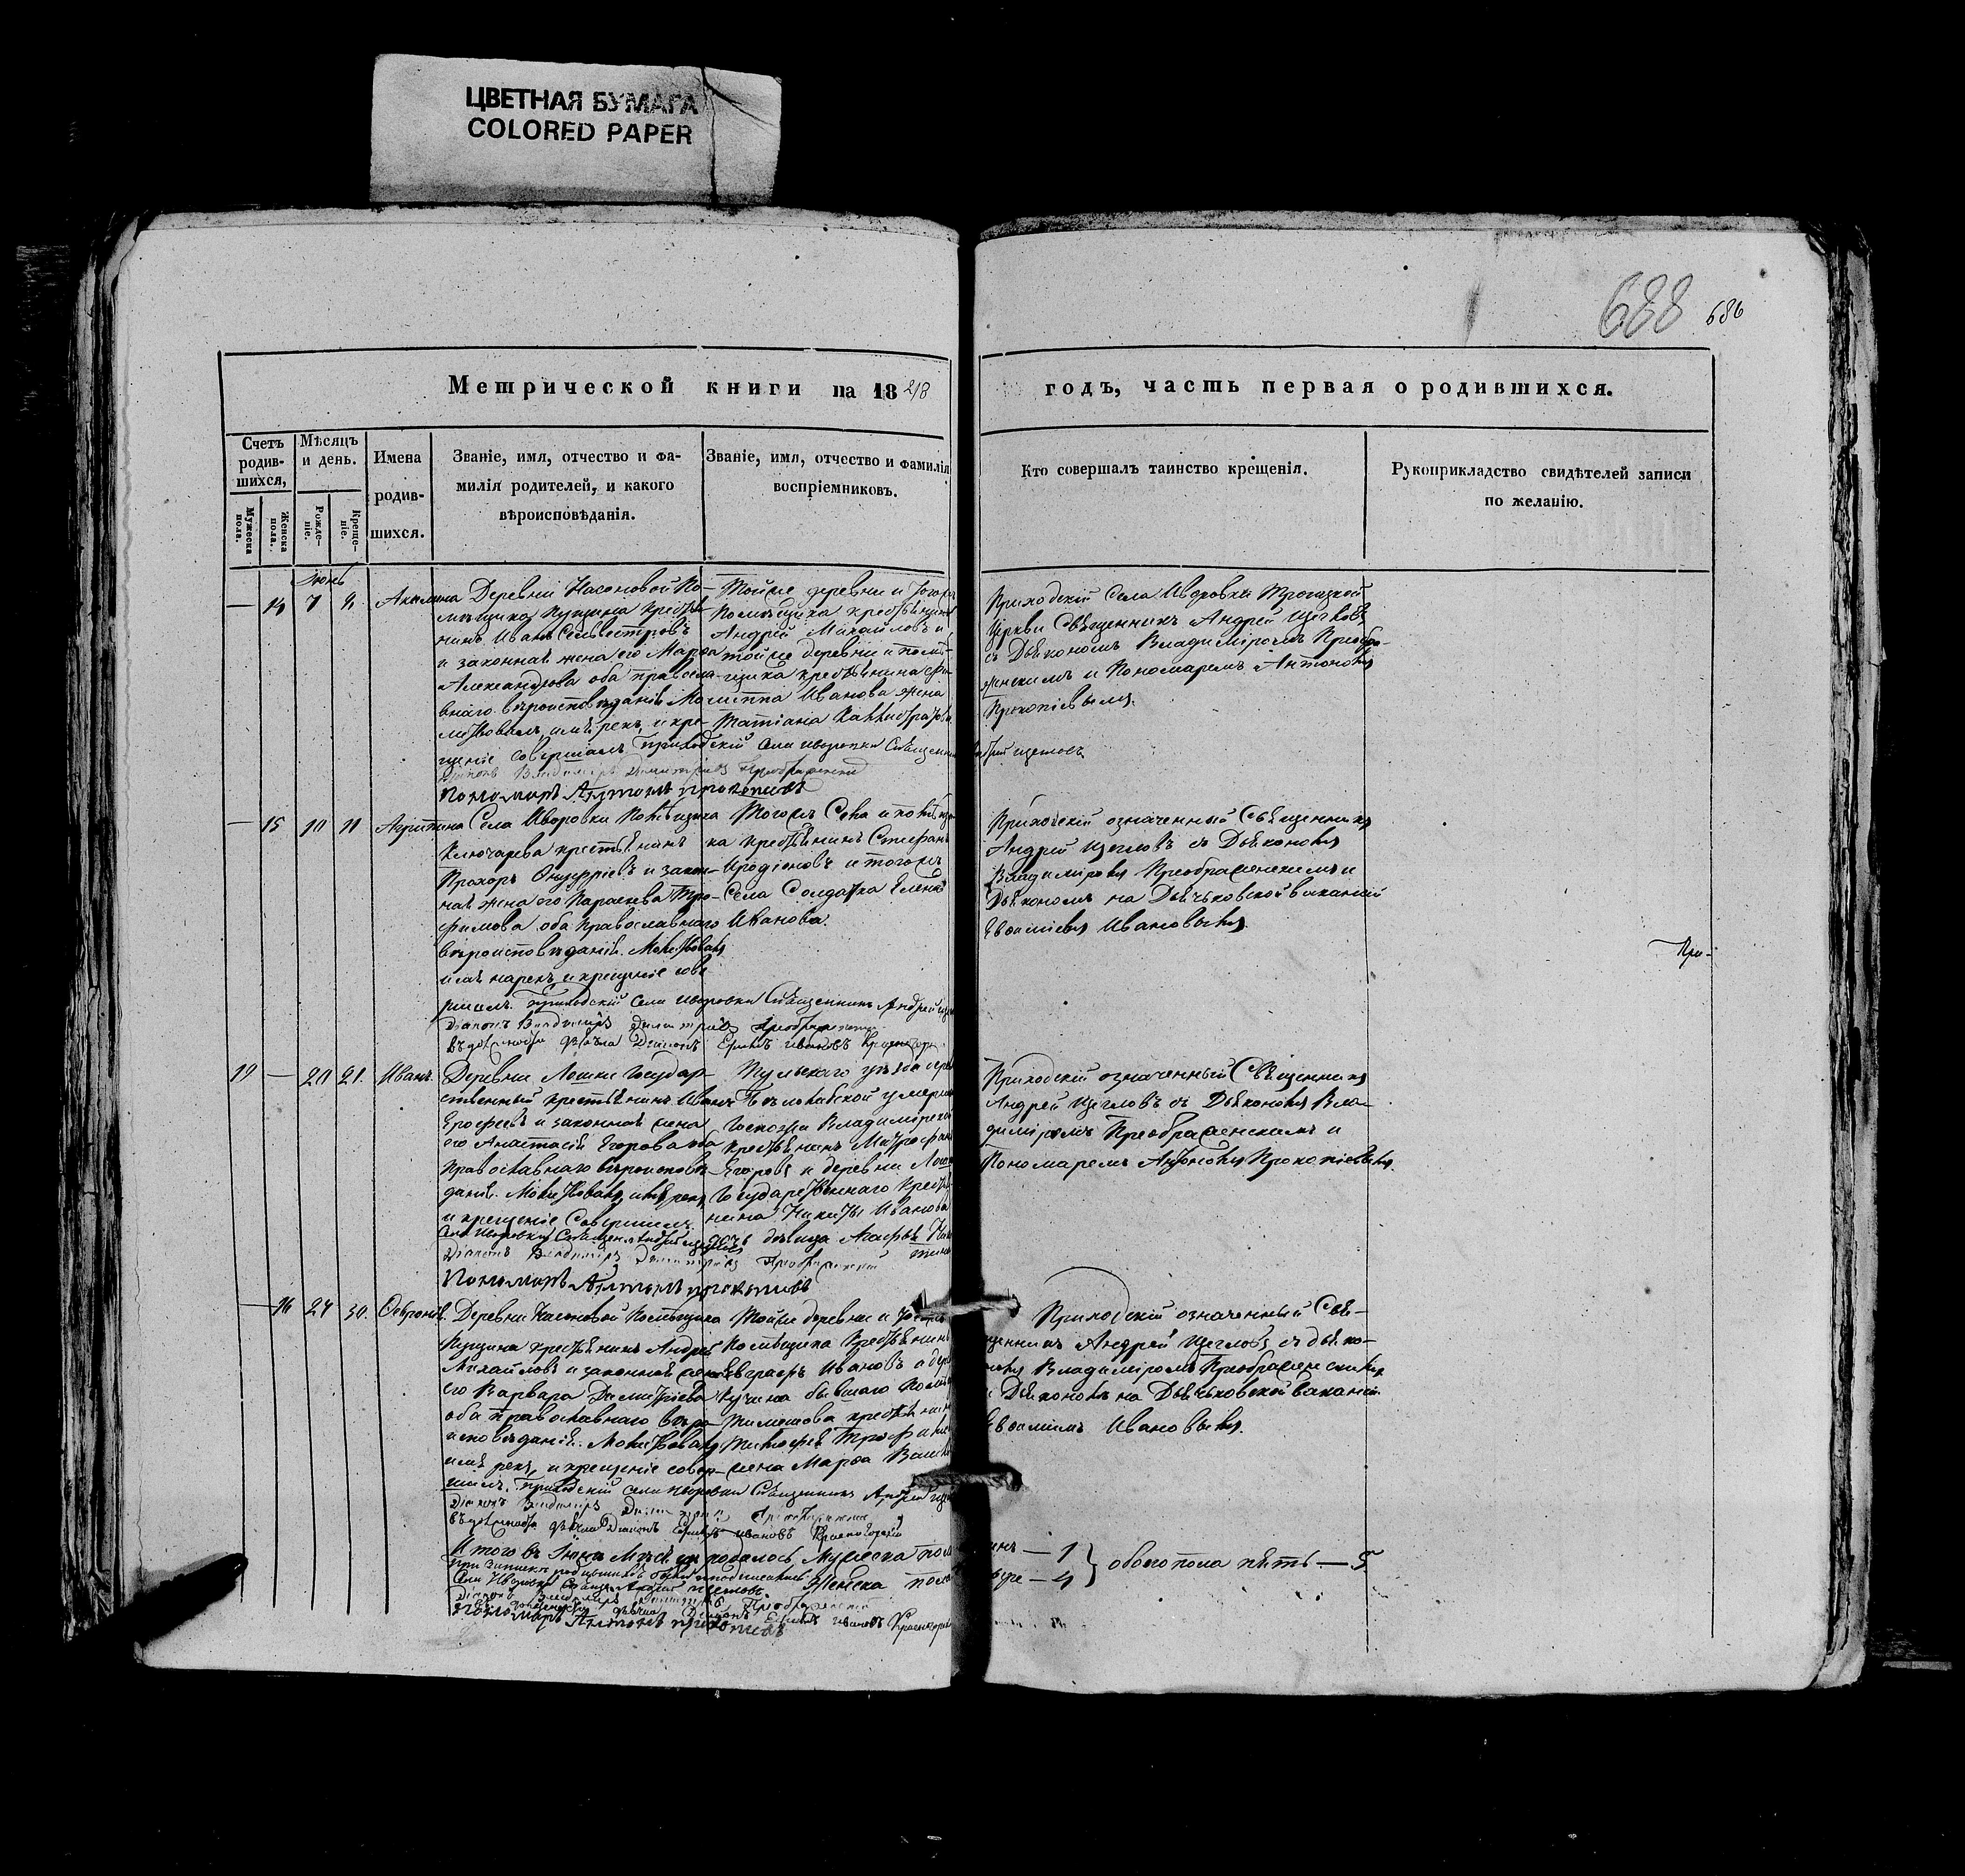 ЦВЕТНАЯ БУМАГА
COLORED PAPER
688 686
Метрической книги на 1848
годъ, часть первая о родившихся.
Счетъ родив-шихся,
Мужеска пола.
Женска пола.
Мѣсяцъ и день.
Рожде-ніе.
Креще-ніе.
Имена родив-шихся.
Званіе, имя, отчество и фа-
милія родителей, и какого
вѣроисповѣданія.
Званіе, имя, отчество и фамилія
воспріемниковъ.
Кто совершалъ таинство крещенія.
Рукоприкладство свидѣтелей записи
по желанію.
Июнь
— 14 7 9. Акилина
Деревни Насоновой По-
мѣщика Пущина крестья-
нинъ Иванъ Селивестровъ
и законная жена его Марѳа
Александрова оба православ-
наго вѣроисповѣданія Мо-
литвовалъ, имя рекъ, и кре-
щеніе совершалъ Приходскій села Иворовки Священникъ Андрей Щегловъ
Діаконъ Владимиръ Димитріевъ Преображенскій
Пономарь Антонъ Прокопиевъ
Тойже деревни и тогожъ
Помѣщика крестьянинъ
Андрей Михайловъ и
тойже деревни и помѣ-
щика крестьянина Фи-
липпа Иванова жена
Татіана Каллистратова
Приходскій Села Иворовки Троицкой
Церкви Священникъ Андрей Щегловъ
съ Дьякономъ Владиміромъ Преобра-
женскимъ и Пономаремъ Антономъ
Прокопіевымъ.
— 15 10 11 Агрипина
Села Иворовки Помѣщика
Ключарева крестьянинъ
Прохоръ Онуфріевъ и закон-
ная жена его Параскева Тро-
фимова оба Православнаго
вѣроисповѣданія. Молитвовалъ
имя нарекъ и крещеніе сове
ршалъ Приходскій села Иворовки Священникъ Андрей
Діаконъ Владимиръ Димитріевъ Преображенскій
Въ должности дьячка Діаконъ Ефимъ Ивановъ
Тогожъ Села и помѣщи-
ка крестьянинъ Стефанъ
Иродіоновъ и тогожъ
Села Солдатка Елена
Иванова.
Приходскій означенный Священникъ
Андрей Щегловъ съ Дьякономъ
Владиміромъ Преображенскимъ и
Дьякономъ на Дьячковской вакансіи
Евѳиміемъ Ивановымъ.
При-
19 — 20 21. Иванъ.
Деревни Лошки Государ-
ственный крестьянинъ Иванъ
Ерофеевъ и законная жена
его Анастасія Егорова оба
Православнаго вѣроисповѣ-
данія. Молитвовалъ, имя рекъ,
и крещеніе Совершалъ
села Иворовки Священникъ Андрей Щегловъ
Діаконъ Владимиръ Димитріевъ Преображенскій
Пономарь Антонъ Прокопиевъ
Тульскаго уѣзда
умершей
Госпожи Владимірской
крестьянинъ Митрофанъ
Егоровъ и деревни
Государственнаго крестья-
нина Никиты Иванова
дочь дѣвица Агафья
Приходскій означенный Священникъ
Андрей Щегловъ съ Дьякономъ Вла-
диміромъ Преображенскимъ и
Пономаремъ Антономъ Прокопіевымъ.
— 16 27 30. Ѳевронія.
Деревни Насоновой Помѣщика
Пущина крестьянинъ Андрей
Михайловъ и законная жена
его Варвара Димитріева
оба православнаго вѣро-
исповѣданія. Молитвовалъ,
имя рекъ, и крещеніе совер-
шалъ. Приходскій села Иворовки Священникъ Андрей
Діаконъ Владимиръ Димитрій Преображенский
Въ должности дьячка Діаконъ Ефимъ Ивановъ Красногорскій
Тойже деревни и тогожъ
Помѣщика крестьянинъ
Евграфъ Ивановъ
бывшаго
крестьянина
Тимофея Трофимова
жена Марѳа
Приходскій означенный Свя-
щенникъ Андрей Щегловъ съ дьяко-
номъ Владиміромъ Преображенскимъ
и Дьякономъ на Дьячковской вакансіи
Евѳиміемъ Ивановымъ.
Итого въ Іюнѣ Мѣсяцѣ родилось Мужеска пола одинъ — 1
Женска пола четыре — 4
обоего пола пять — 5
Села Иворовки Священникъ Андрей Щегловъ
Діаконъ Владимиръ Димитріевъ Преображенскій
Діаконъ Ефимъ Ивановъ Красногорскій
Пономарь Антонъ Прокопиевъ